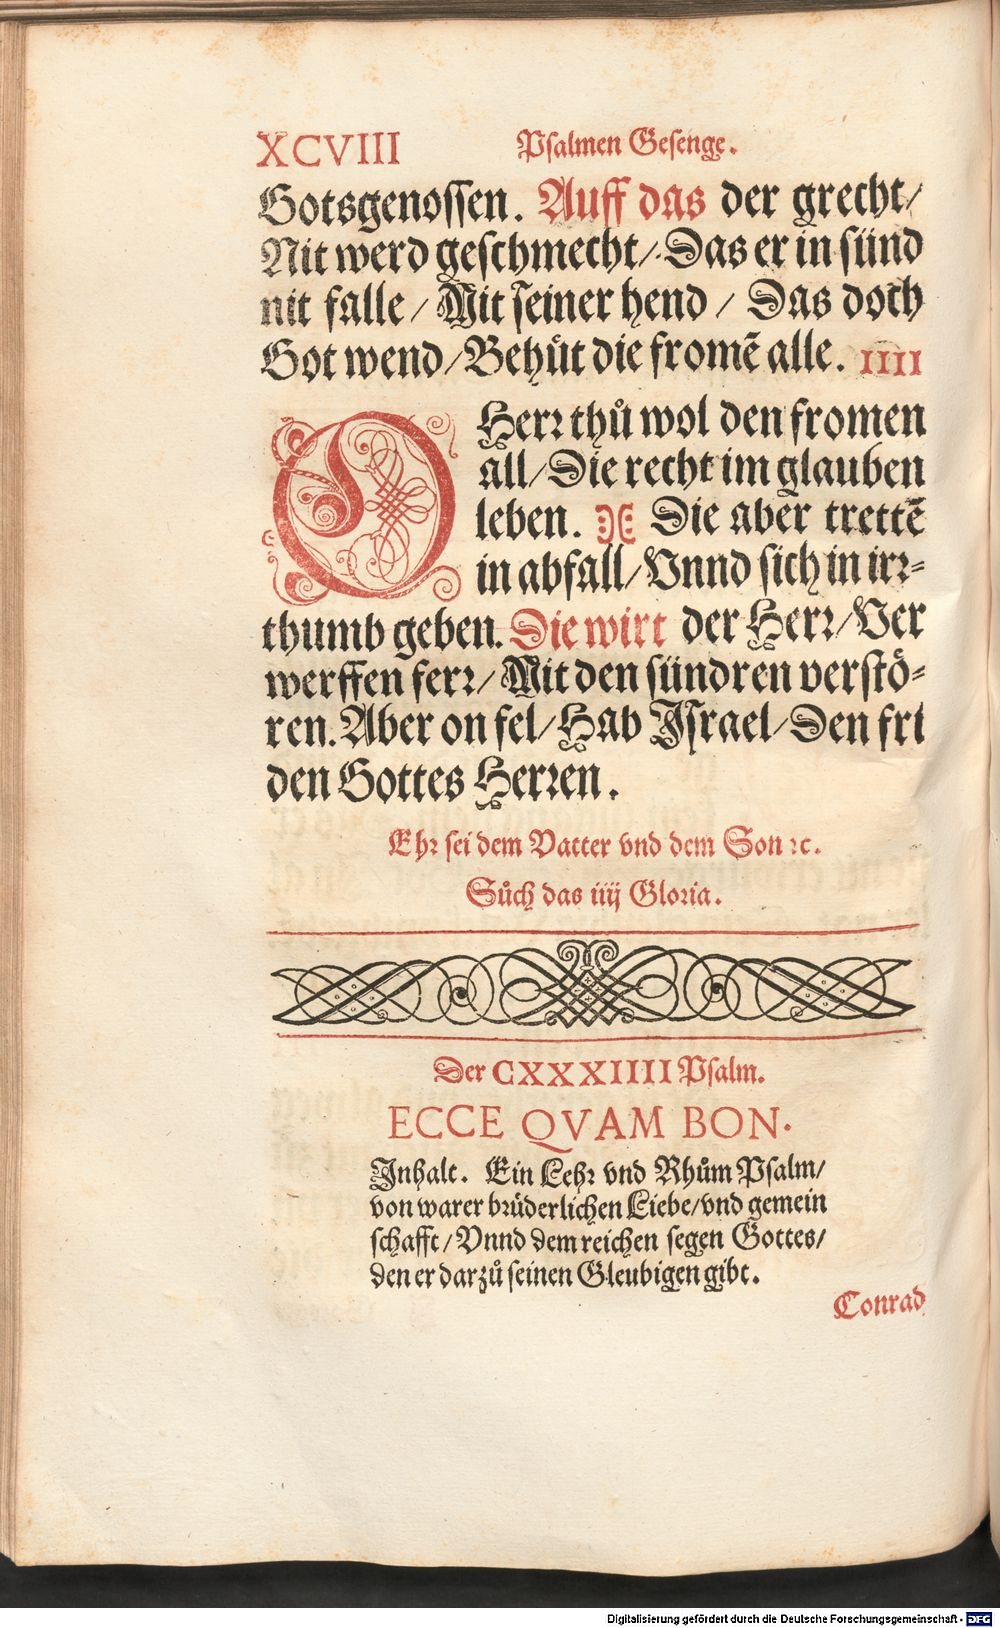 XCVIII Psalmen Gesenge.
Gotsgenossen. Auff das der grecht/
Nit werd geschmecht/ Das er in sünd
nit falle / Mit seiner hend / Das doch
Got wend/ Behůt die fromē alle. IIII
O Herr thů wol den fromen
all/ Die recht im glauben
leben. Die aber trettē
in abfall/ Vnnd sich in irr-
thumb geben. Die wirt der Herr/ Ver
werffen ferr/ Mit den sündren verstö-
ren. Aber on fel/ Hab Israel/ Den fri
den Gottes Herren.
Ehr sei dem Vatter vnd dem Son ꝛc.
Sůch das iiij Gloria.
Der CXXXIIII Psalm.
ECCE QVAM BON.
Inhalt. Ein Lehr vnd Rhům Psalm/
von warer brüderlichen Liebe/ vnd gemein
schafft/ Vnnd dem reichen segen Gottes/
den er darzů seinen Gleubigen gibt.
Conrad
Digitalisierung gefördert durch die Deutsche Forschungsgemeinschaft - DFG